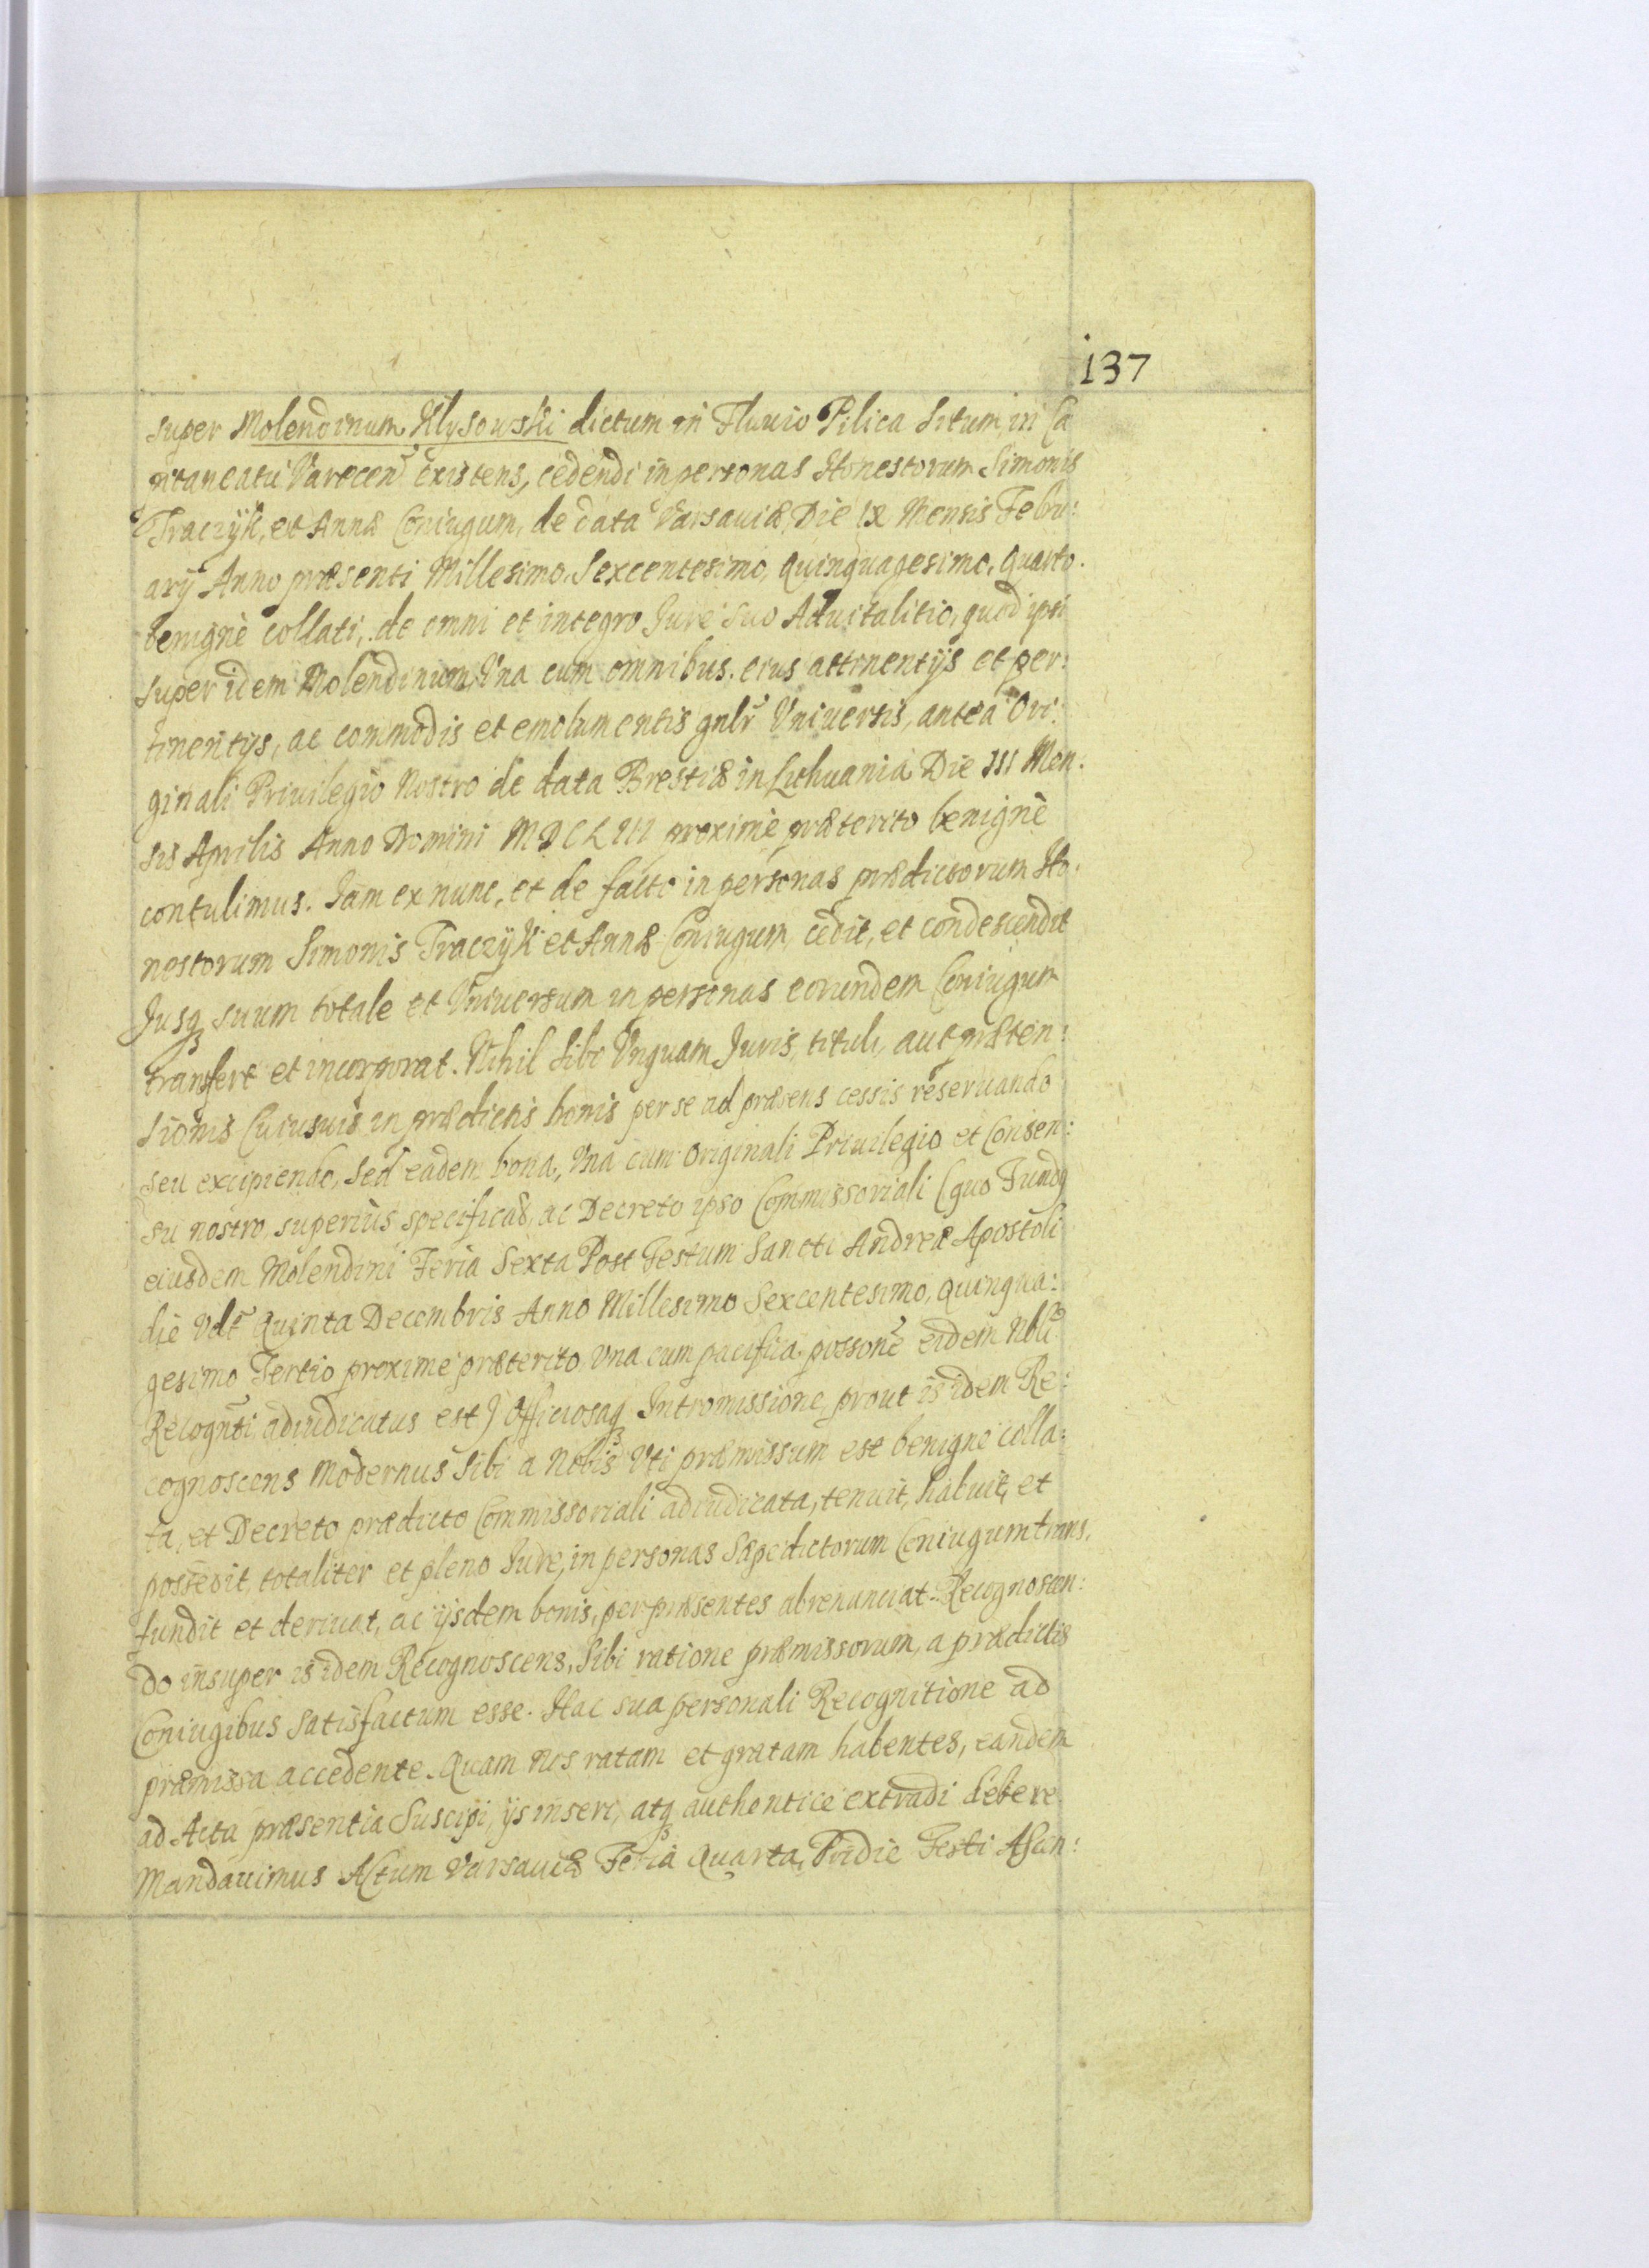 137
super Molendinum Klysowski dictum in Fluuio Pilica situm, in Ca
pitaneatu Varecen̄ existens, cedendi in personas Honestorum Simonis
Traczÿk, et Annæ Coniugum, de data Varsauiæ Die IX Mensis Febru:
arÿ Anno præsenti Millesimo, Sexcentesimo, Quinquagesimo, Quarto.
benignè collati, de omni et integro Jure suo Aduitalitio, quod ipsi
super idem Molendinum, Vna cum omnibus, eius attinentijs et per:
tinentijs, ac commodis et emolumentis gnlr̄ Vniuersis, anteà Ori:
ginali Priuilegio Nostro de data Brestiæ in Lithuania Die III Men:
sis Aprilis Anno Domini MDCLIII proximè præterito benignè
contulimus. Jam ex nunc, et de facto in personas prædictorum Ho:
nestorum Simonis Traczÿk et Annæ Coniugum, cedit, et condescendit
Jusq3 suum totale et Vniuersum in personas eorundem Coniugum
transfert et incorporat. Nihil sibi Vnquam Juris, tituli, aut præten:
sionis Cuiusuis in prædictis bonis per se ad præsens cessis reseruando
seu excipiendo, sed eadem bona, Vna cum Originali Priuilegio et Consen:
su nostro, superiùs specificaō, ac Decreto ipso Commissoriali (quo Fundq
eiusdem Molendini Feria Sexta Post Festum Sancti Andreæ Apostoli
die Vdt̄ Quinta Decembris Anno Millesimo Sexcentesimo, Quinqua:
gesimo Tertio proximè præterito Vna cum pacifica possonē eidem Nbli
Recogn̄ti adiudicatus est) Officiosaq3 Intromissione, prout is idem Re:
cognoscens Modernus Sibi a Nobis Vti præmissum est benignè colla:
ta, et Decreto prædicto Commissoriali adiudicata, tenuit, habuit, et
possedit, totaliter et pleno Jure, in personas sæpedictorum Coniugum trans,
fundit et deriuat, ac ijsdem bonis, per præsentes abrenunciat. Recognoscen:
do insuper is idem Recognoscens, Sibi ratione præmissorum, a prædictis
Coniugibus satisfactum esse. Hac sua personali Recognitione ad
præmissa accedente. Quam Nos ratam et gratam habentes, eandem
ad Acta præsentia Suscipi, ijs inseri, atq3 authenticè extradi debere
Mandauimus Actum Varsauiæ Feria Quarta, Pridie Festi Ascen: